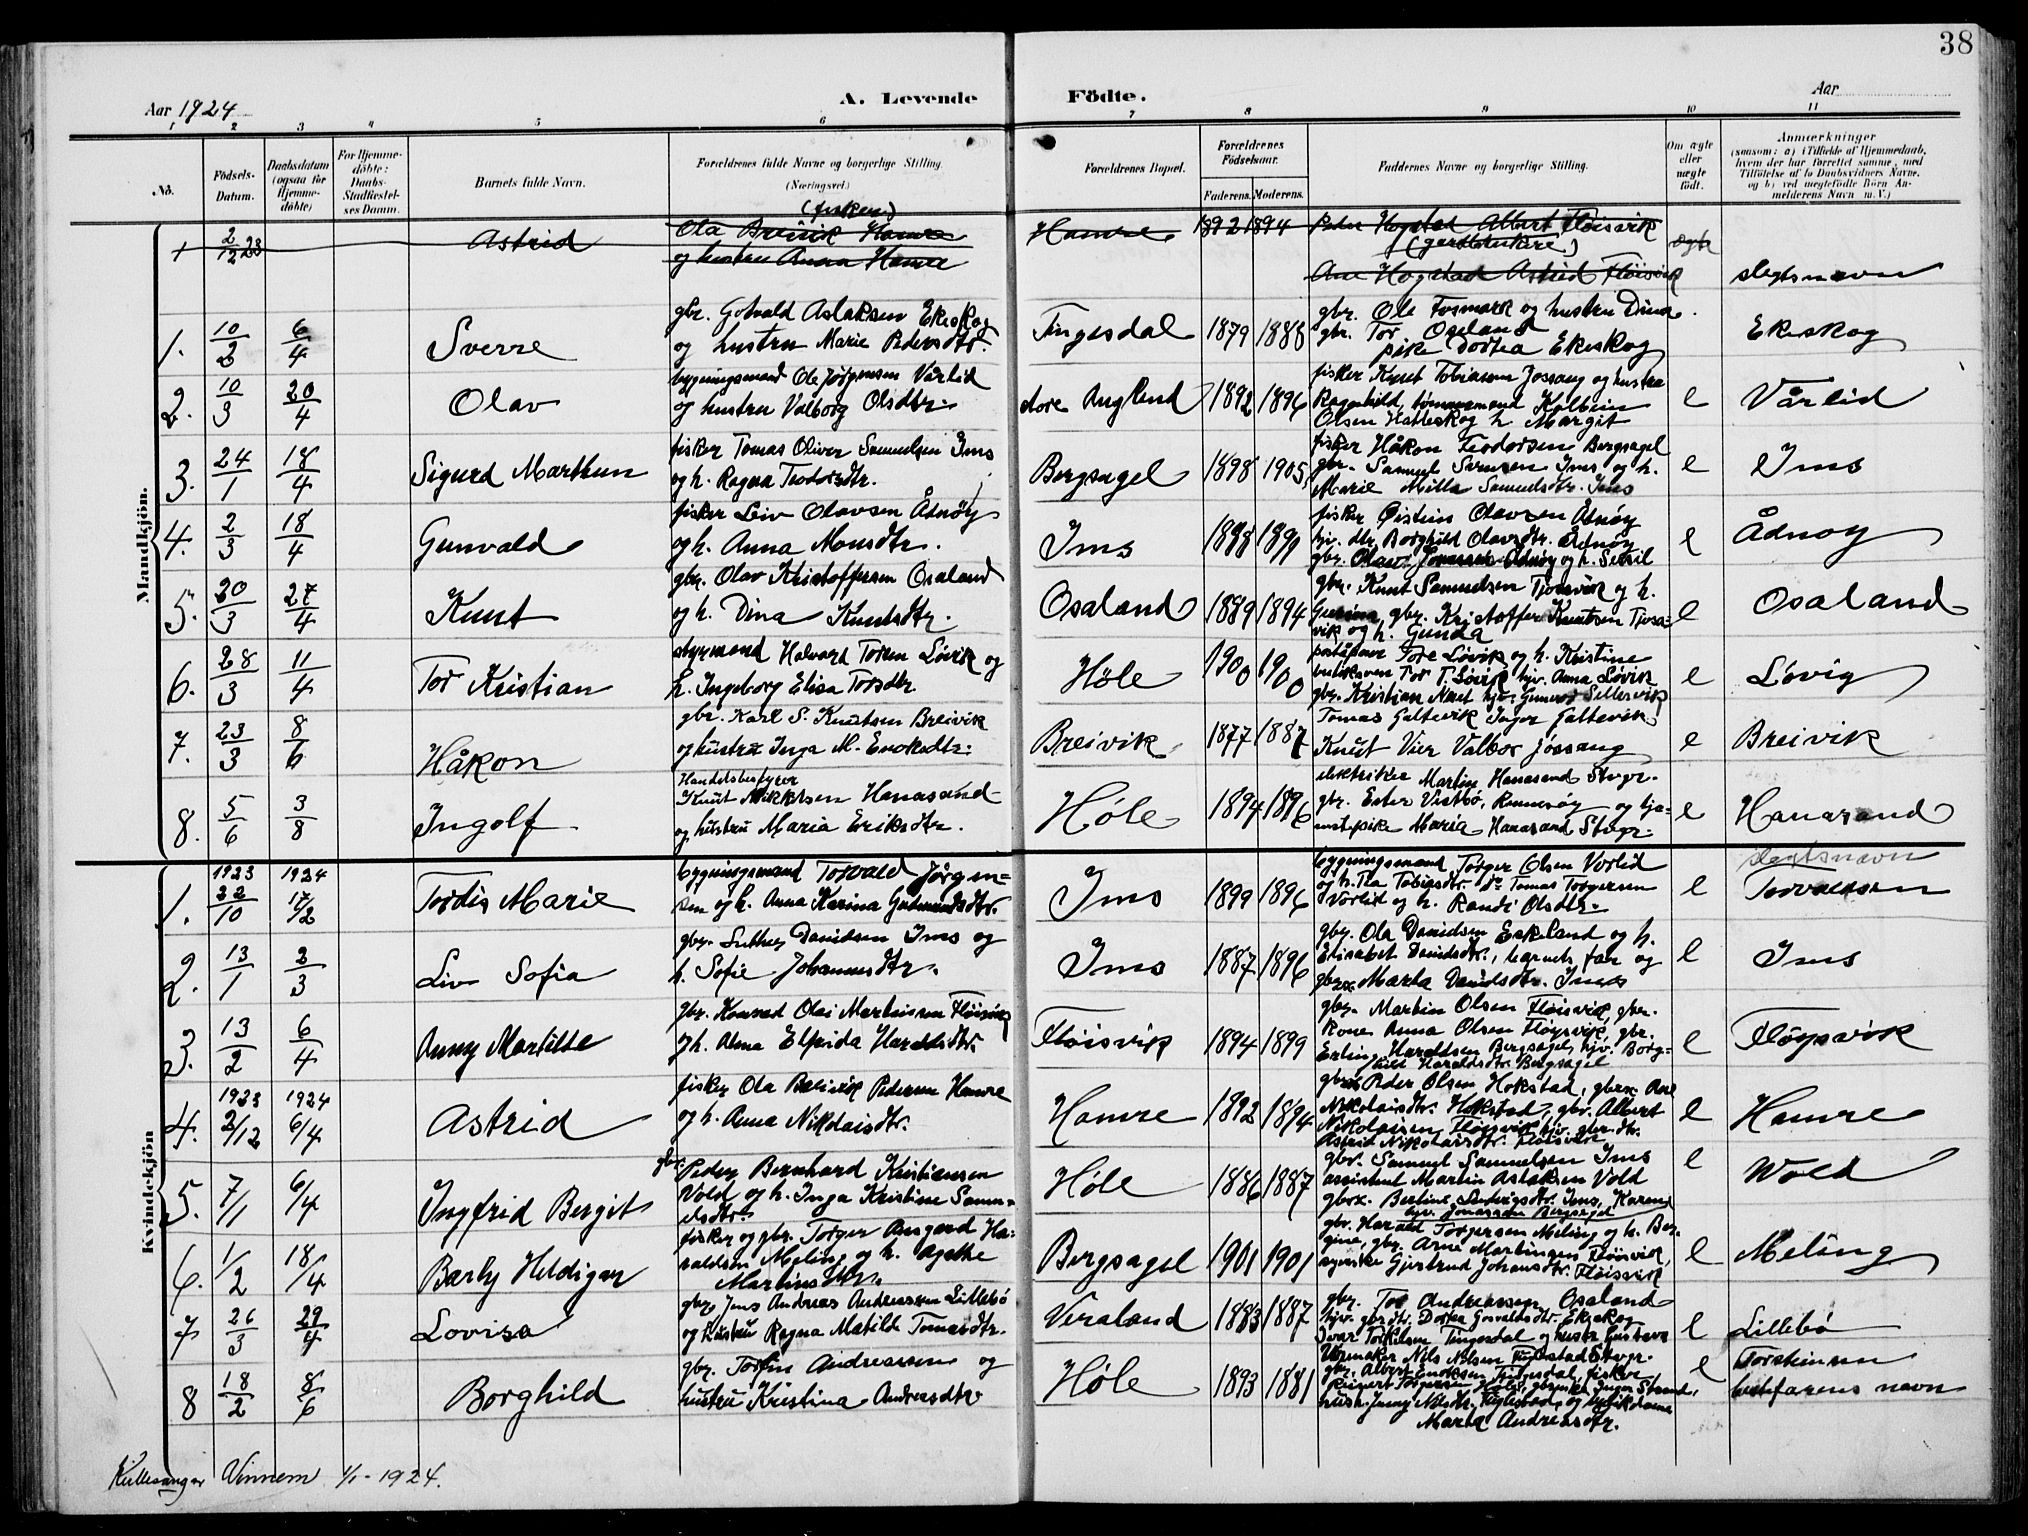 38
Aar 1924
A. Levende Födte.
Aar
1 2 3 4 5 6 7 8 9 10 11
No.
Födsels-Datum.
Daabsdatum (ogsaa for Hjemme-döbte)
For Hjemme-döbte: Daabs-Stadfæstel-ses Datum.
Barnets fulde Navn.
Forældrenes fulde Navne og borgerlige Stilling. (Næringsvei.)
Forældrenes Bopæl.
Forældrenes Födselsaar.
Faderens. Moderens.
Faddernes Navne og borgerlige Stilling.
Om ægte eller uægte födt.
Anmærkninger
(saasom: a) i Tilfælde af Hjemmedaab,
hvem der har forrettet samme, med
Tilföielse af to Daabsvidners Navne,
og b) ved uægtefödte Börn An-
melderens Navn m. V.)
Mandkjön.
1 2/12 23 Astrid
(fisker)
Ola Breivik Hamre
og hustru Anna Hamre
Hamre 1892 1894
Peder Hogstad Albert Fløisvik
(gardbrukere)
Ane Hogstad Astrid Fløisvik
ægte
slegtsnavn
1. 10/2 6/4 Sverre
gbr. Gotvald Aslaksen Ekeskog
og hustru Marie Pedersdtr.
Tingesdal 1879 1888
gbr. Ole Fosmark og hustru Dina.
gbr. Tor Oseland
pike Dortea Ekeskog
Ekeskog
2. 10/3 20/4 Olav
bygningsmand Ole Jørgensen Vårlid
og hustru Valborg Olsdtr.
store Augland 1892 1896
fisker Knut Tobiasen Jossang og hustru
Ragnhild, tømmermand Kolbein
Olsen Hatleskog h. Margit
e Vårlid
3. 24/1 18/4 Sigurd Marthun
fisker Tomas Oliver Samuelsen Ims
og h. Ragna Teodorsdtr.
Bergsagel 1898 1905
fisker Håkon Teodorsen Bergsagel
gbr. Samuel Svensen Ims og h.
Marie Milla Samuelsdtr. Ims
e Ims
4. 2/3 18/4 Gunvald
fisker Leiv Olavsen Ådnøy
og h. Anna Monsdtr.
Ims
fisker Øistein Olavsen Ådnøy
hjv. dtr. Borghild Olavsdtr. Ådnøy
gbr. Olav Jonassen Ådnøy og h. Setsil
e Ådnoy
5. 20/3 27/4 Knut
gbr. Olav Kristoffersen Osaland
og h. Dina Knutsdtr.
Osaland 1889 1894
gbr. Knut Samuelsen Tjosvik og h.
gbr. Kristoffer Knutsen Tjosa-
vik og h. Gunda
e Osaland
6. 28/3 11/4 Tor Kristian
styrmand Halvard Torsen Løvik og
h. Ingeborg Elisa Torsdtr
Høle 1900 1900
poståpner Tore Løvik og h. Kristine
Tor T. Løvik hjv. Anna Løvik
gbr. Kristian Sellesvik
e Løvig
7. 23/3 8/6 Håkon
gbr. Karl S. Knutsen Breivik
og hustru Inga M. Enoksdtr.
Breivik 1877 1887
Tomas Galtevik Inger Galtevik
Knut Vier Valbor Jøssang
e Breivik
8. 5/6 3/8 Ingolf
Handelsbestyrer
Knut Mikkelsen Hanasand
og hustru Maria Eriksdtr.
Høle 1894 1896
elektriker Martin Hanasand Stvgr.
gbr. Ester Vistbø, Rennesøy og tje-
nestepike Maria Hanasand Stvgr.
e Hanasand
Kvindekjön
1. 1923 22/10 1924 17/2 Tordis Marie
bygningsmand Torvald Jørgen-
sen og h. Anna Karina Gudmundsdtr.
Ims 1899 1896
bygningsmand Torger Olsen Vorlid
og h. Tea Tobiasdtr. do Tomas Torgersen
Vorlid og h. Randi Olsdtr.
e
slegtsnavn
Torvaldsen
2. 13/1 2/3 Liv Sofia
gbr. Luther Danielsen Ims og
h. Sofie Johannesdtr.
Ims 1887 1896
gbr. Ola Danielsen Eskeland og h.
Elisabet Danielsdtr., barnets far og
Marta Danielsdtr. Ims
e Ims
3. 13/2 6/4 Anny Martilde
gbr. Konrad Olai Martinsen Fløisvik
og h. Alma Elfrida Haraldsdtr.
Fløisvik 1894 1899
gbr. Martin Olsen Fløisvik, gbr.
kone Anna Olsen Fløysvik, gbr.
Erling Haraldsen Bergsagel, hjv. Borg-
hild Haraldsdtr. Bergsagel
e Fløysvik
4. 1923 2/12 1924 6/4 Astrid
fisker Ola Breivik Pedersen Hamre
og h. Anna Nikolaisdtr.
Hamre 1892 1894
Peder Olsen Hokstad, gbrk. Ane
Nikolaisdtr. Hokstad, gbr. Albert
Nikolaisen Fløisvik hjv. gbr. dtr.
Astrid Nikolaisdtr. Fløisvik
e Hamre
5. 7/1 6/4 Ingfrid Bergit
gbr. Peder Bernhard Kristiansen
Vold og h. Inga Kristine Samu-
elsdtr.
Høle 1886 1887
gbr. Samuel Samuelsen Ims
assistent Martin Aslaksen Vold
gbrk. Bertine Ludvigsdtr. Ims, Karen
hjv. Jonassen Bergsagel
e Wold
6. 1/2 18/4 Barly Heldigar
fisker og gbr. Torger Ansgard Ha-
raldsen Meling og h. Agathe
Martinsdtr.
Bergsagel 1901 1901
gbr. Harald Torgersen Meling og h. Ber-
gine, gbr. Arne Martinsen Fløisvik,
Gjertrud Johansdtr. Fløisvik
e Meling
7 26/3 29/4 Lovisa
gbr. Jens Andreas Andreassen Lillebø
og hustru Ragna Matilde Tomasdtr.
Veraland 1883 1887
gbr. Tor Andreassen Osaland
hjv. gbr. dtr. Dortea Gosvaldsdtr. Ekeskog
Ivar Torkelsen Tingesdal og hustr. Gustava
e Lillebø
8 18/2 8/6 Borghild
gbr. Torfin Andreassen og
hustru Kristina Andreasdtr
Høle 1893 1881
Urmaker Nils Nilsen Stvgr.
gbr. Albert Enoksen Tingesdal, fisker
Torgersen Høle, Inger Strand,
hush. Jenny Nilsdtr. og
Marta Andreasdtr.
e Torsteinsen
bestefarens navn
Vinnem 1/1 - 1924.